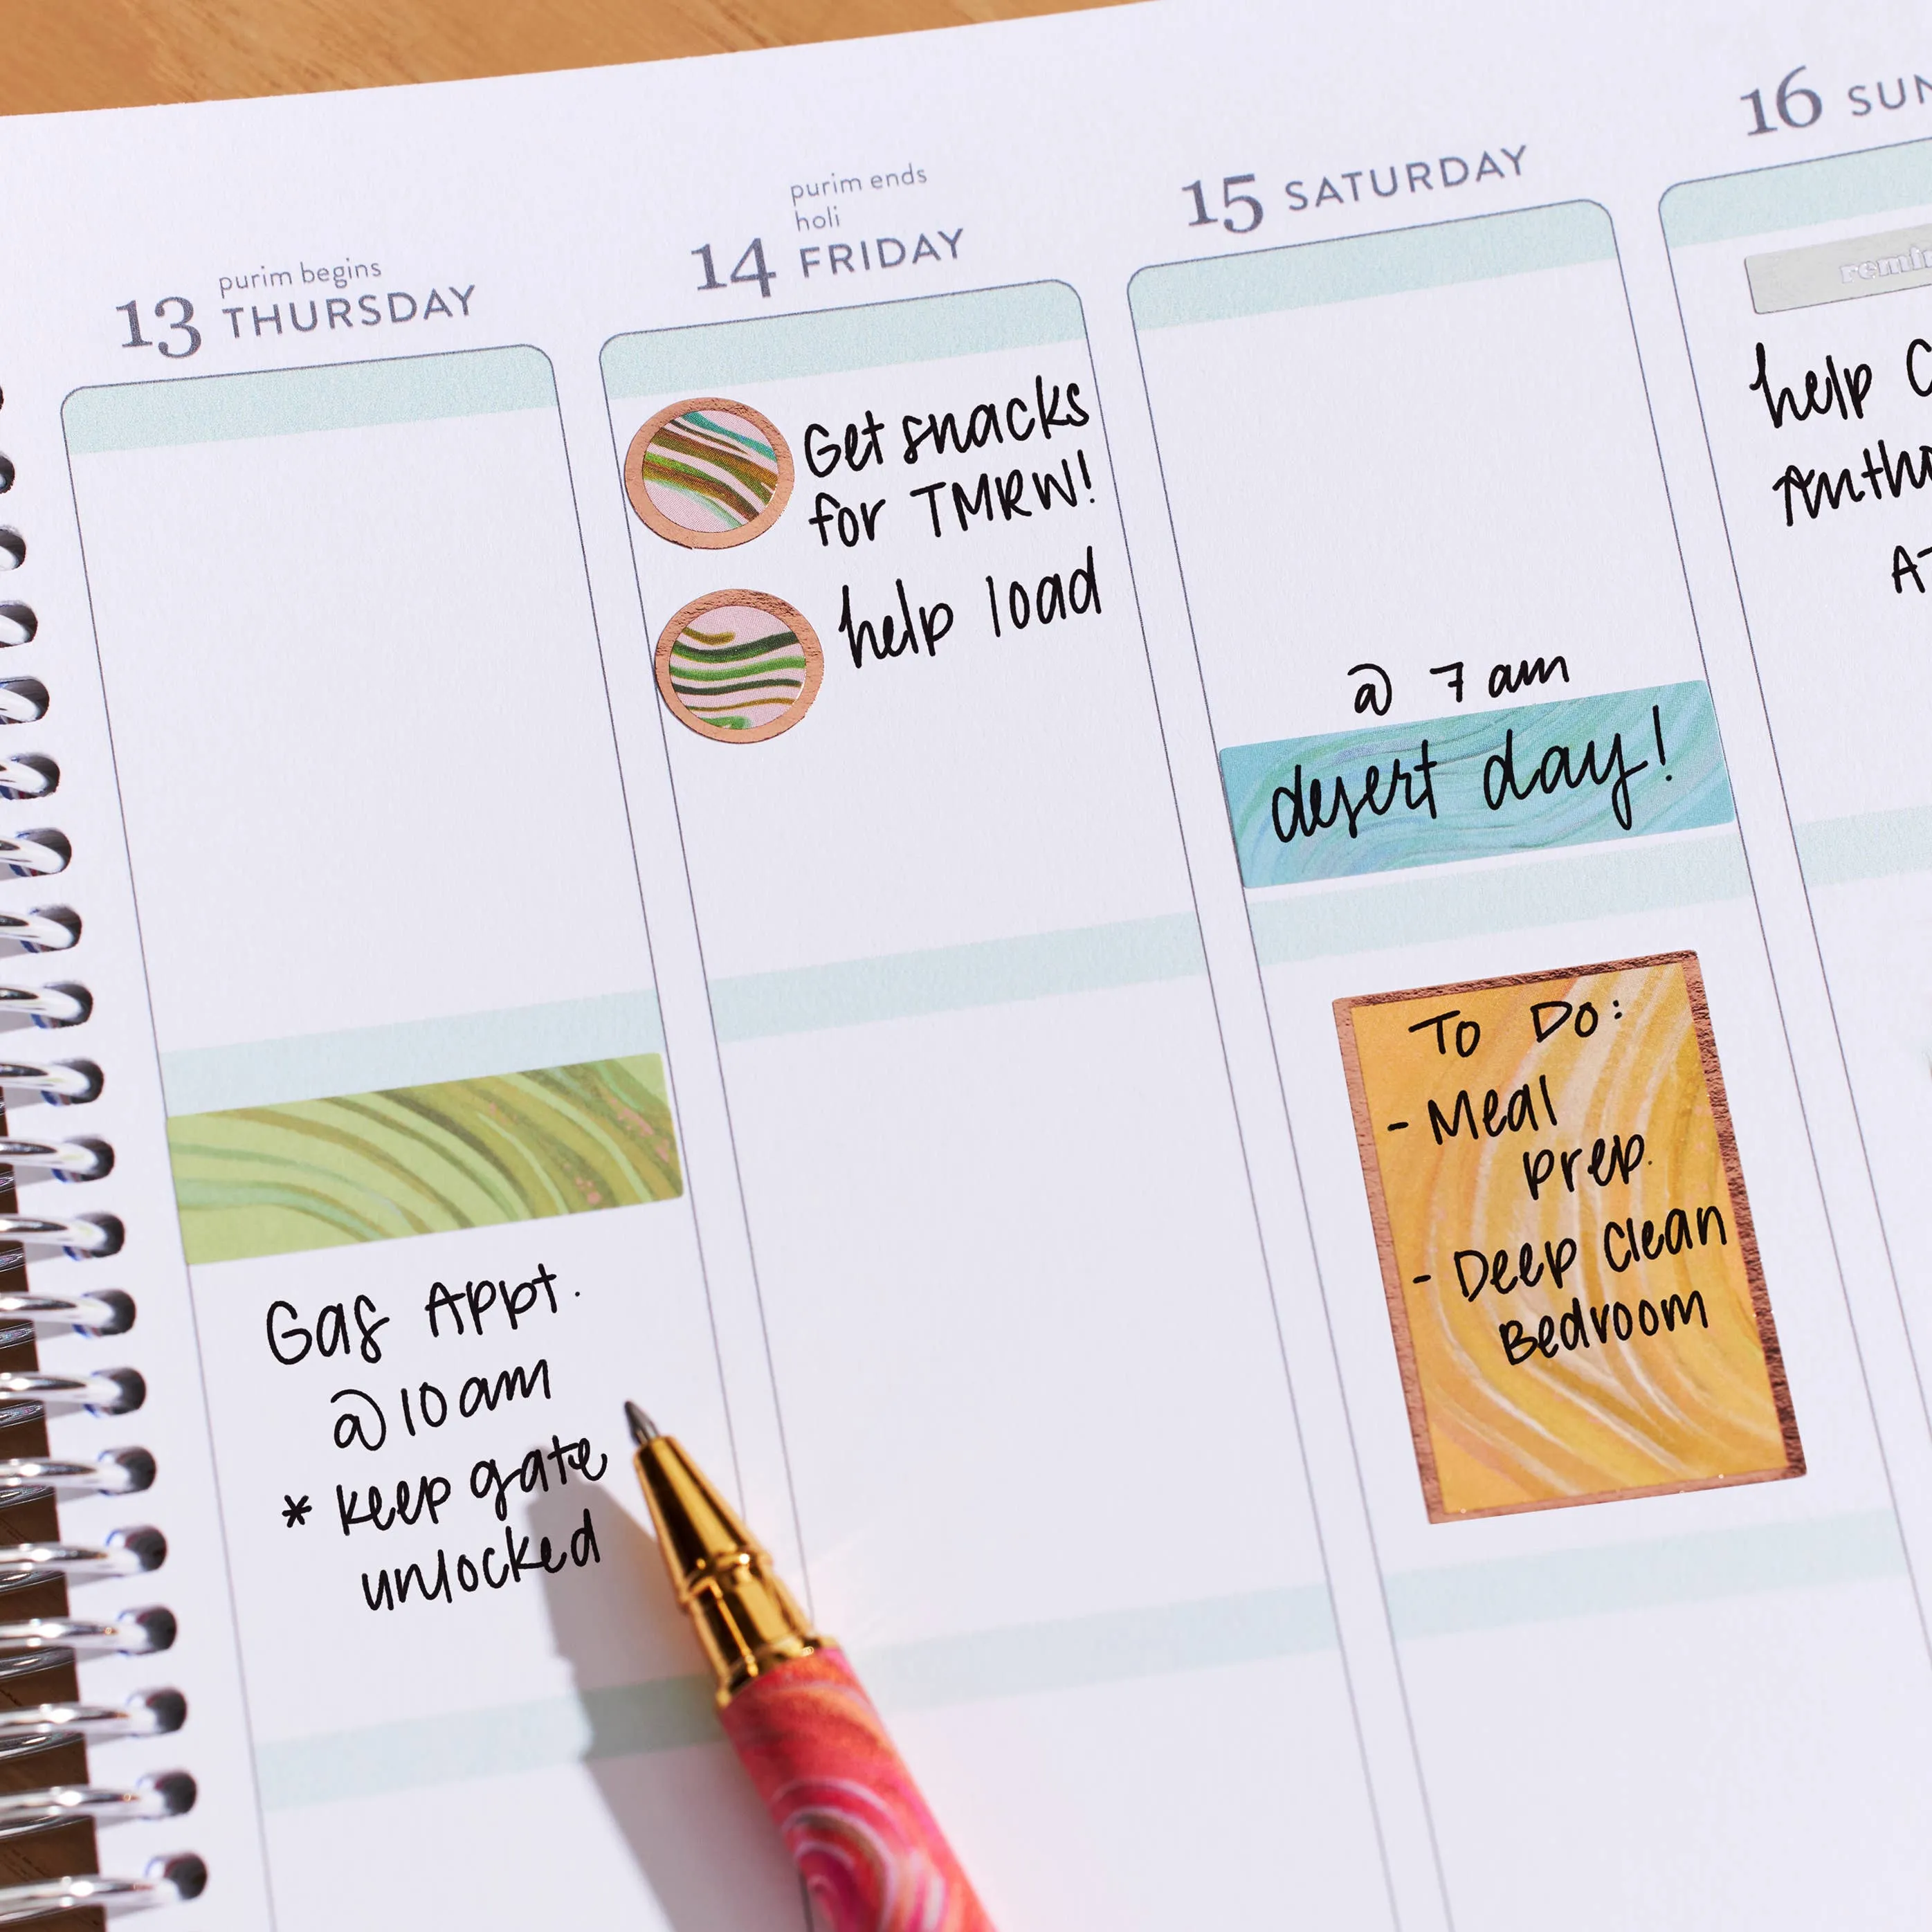 purim begins
13 THURSDAY
Gas Appt.
@ 10 am
* keep gate
unlocked
purim ends
holi
14 FRIDAY
Get snacks
for TMRW!
help load
15 SATURDAY
@ 7 am
desert day!
To Do:
- Meal
prep.
- Deep Clean
Bedroom
16
help